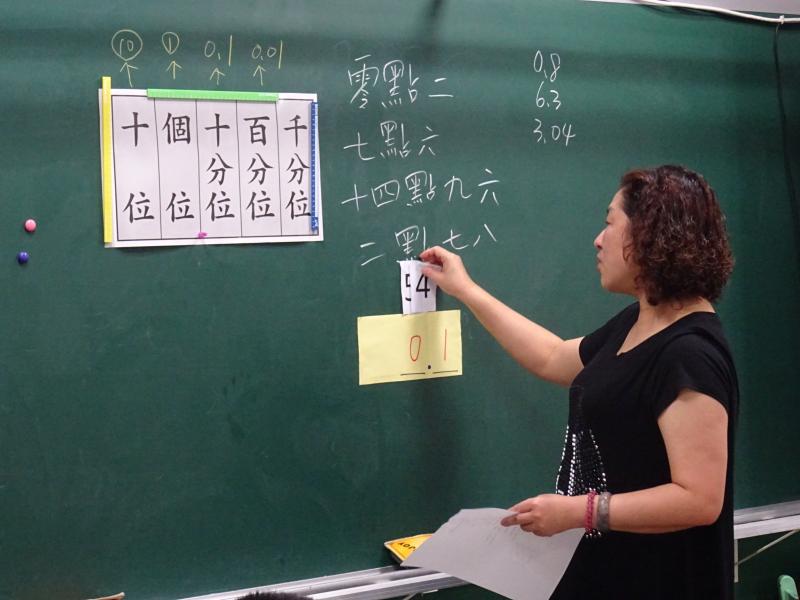 10 1 0.1 0.01
十位 個位 十分位 百分位 千分位
零點二
七點六
十四點九六
二點七八
0.8
6.3
3.04
54
0.1